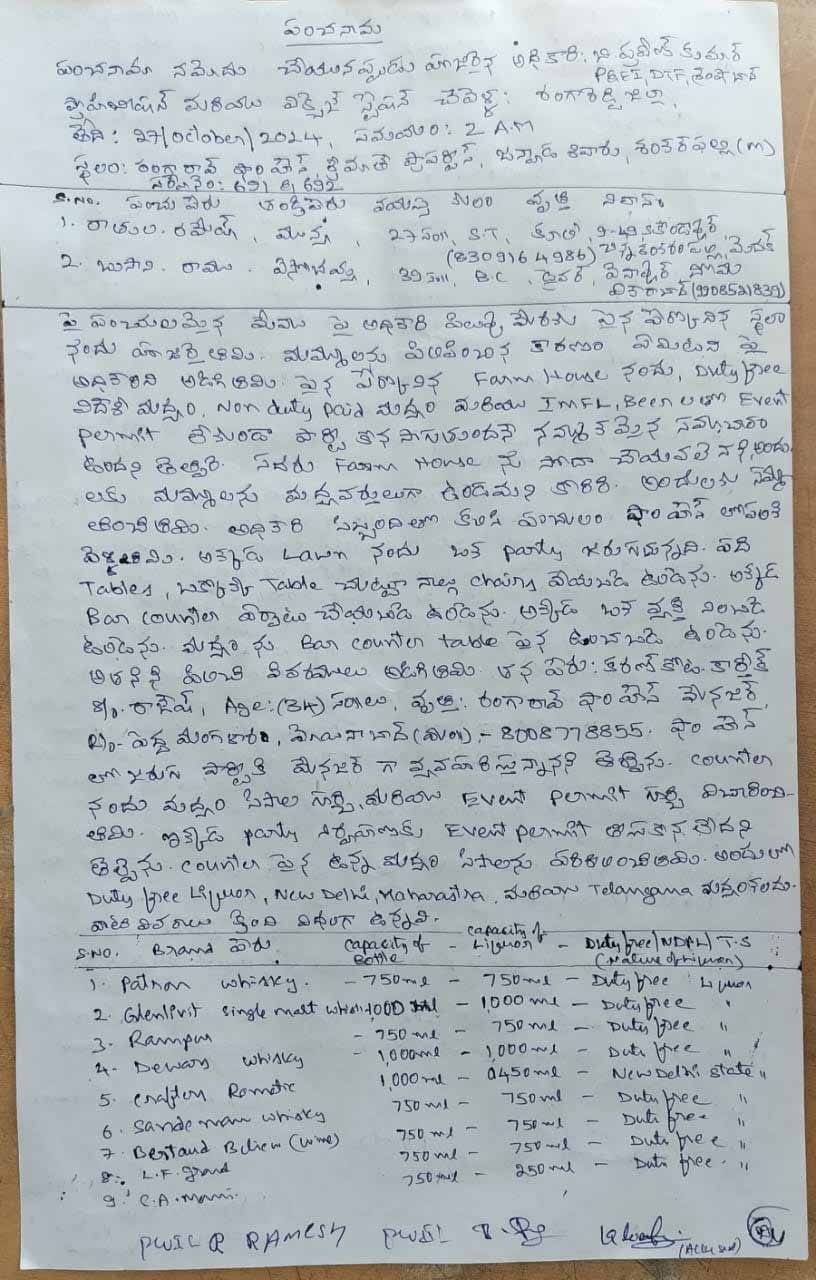 పంచనామ
పంచనామా నమోదు చేయునప్పుడు హాజరైన అధికారి: బి ప్రవీణ్ కుమార్
P&EI, DTF,
ప్రొహిబిషన్ మరియు ఎక్సైజ్ స్టేషన్ చేవెళ్ళ: రంగారెడ్డి జిల్లా,
తేది: 27/October/2024, సమయం: 2 A.M
స్థలం: రంగారావ్ ఫాం హౌస్, శ్రీమాతే ప్రాపర్టీస్, జన్వాడ శివారు, శంకర్ పల్లి (m)
691 & 692
S.No. పంచు పేరు తండ్రిపేరు వయస్సు కులం వృత్తి నివాసం
1. రాతుల. రమేష్, మున్యా, 27 సం॥, S.T, కూలీ,
(8309164986)
2. బుసాని. రాము. 39 సం॥, B.C, డ్రైవర్,
(9908521839)
పై పంచులమైన మేము పై అధికారి పిలుపు మేరకు పైన పేర్కొనిన స్థలం
నందు హాజరైతిమి. మమ్ములను పిలిపించిన కారణం ఏమిటని పై
అధికారిని అడిగితిమి. పైన పేర్కొనిన Farm House నందు, Duty free
విదేశీ మద్యం, Non duty paid మద్యం మరియు IMFL, Beer లతో Event
permit లేకుండా పార్టీ కొనసాగుతుందనే నమ్మకమైన సమాచారం
ఉందని తెలిపారు. సదరు Farm House ను సోదా చేయవలెనని, అందు
లకు మమ్ములను మధ్యవర్తులుగా ఉండమని కోరిరి. అందులకు సమ్మ
తించితిమి. అధికారి సిబ్బందితో కలిసి పంచులం ఫాం హౌస్ లోపలికి
వెళ్ళితిమి. అక్కడ Lawn నందు ఒక party జరుగుచున్నది. పది
Tables, ఒక్కొక్క Table చుట్టూ నాల్గు chairs వేయబడి ఉండెను. అక్కడ
Bar counter ఏర్పాటు చేయబడి ఉండెను. అక్కడ ఒక వ్యక్తి నిలబడి
ఉండెను. మద్యం ను Bar counter table పైన ఉంచబడి ఉండెను.
అతనిని పిలిచి వివరములు అడిగితిమి. తన పేరు: కార్తీక్
S/o. రాజేష్, Age: (34) సం॥లు, వృత్తి: రంగారావ్ ఫాం హౌస్ మేనేజర్,
R/o- పెద్ద మంగళారం, మొయినాబాద్ (మం), - 8008778855. ఫాం హౌస్
లో జరుగు పార్టీకి మేనేజర్ గా వ్యవహరిస్తున్నానని తెల్పెను. counter
నందు మద్యం సీసాల గూర్చి, మరియు Event permit గూర్చి విచారించి-
తిమి. ఇక్కడ party నిర్వహణకు Event permit తీసుకోనలేదని
తెల్పెను. counter పైన ఉన్న మద్యం సీసాలను పరిశీలించితిమి. అందులో
Duty free Liquor, New Delhi, Maharastra, మరియు Telangana మద్యం గలదు.
వాటి వివరాలు క్రింది విధంగా ఉన్నవి.
S.NO. Brand పేరు. capacity of Bottle - capacity of Liquor - Duty free/NDPL/T.S (Nature of Liquor)
1. Patron whisky. - 750ml - 750ml - Duty free Liquor
2. Glenlivit single malt whisky 1000 ml - 1,000 ml - Duty free "
3. Rampur - 750 ml - 750 ml - Duty free "
4. Dewars whisky - 1,000ml - 1,000 ml - Duty free "
5. 1,000 ml - 0450 ml - New Delhi state "
6. Sandeman whisky 750 ml - 750 ml - Duty free "
7. (wine) 750 ml - 750 ml - Duty free "
8. L.F. grand 750 ml - 750 ml - Duty free "
9. C.A. 750 ml - 250 ml - Duty free. "
PW1L R RAMESH PW2L
(Accused)